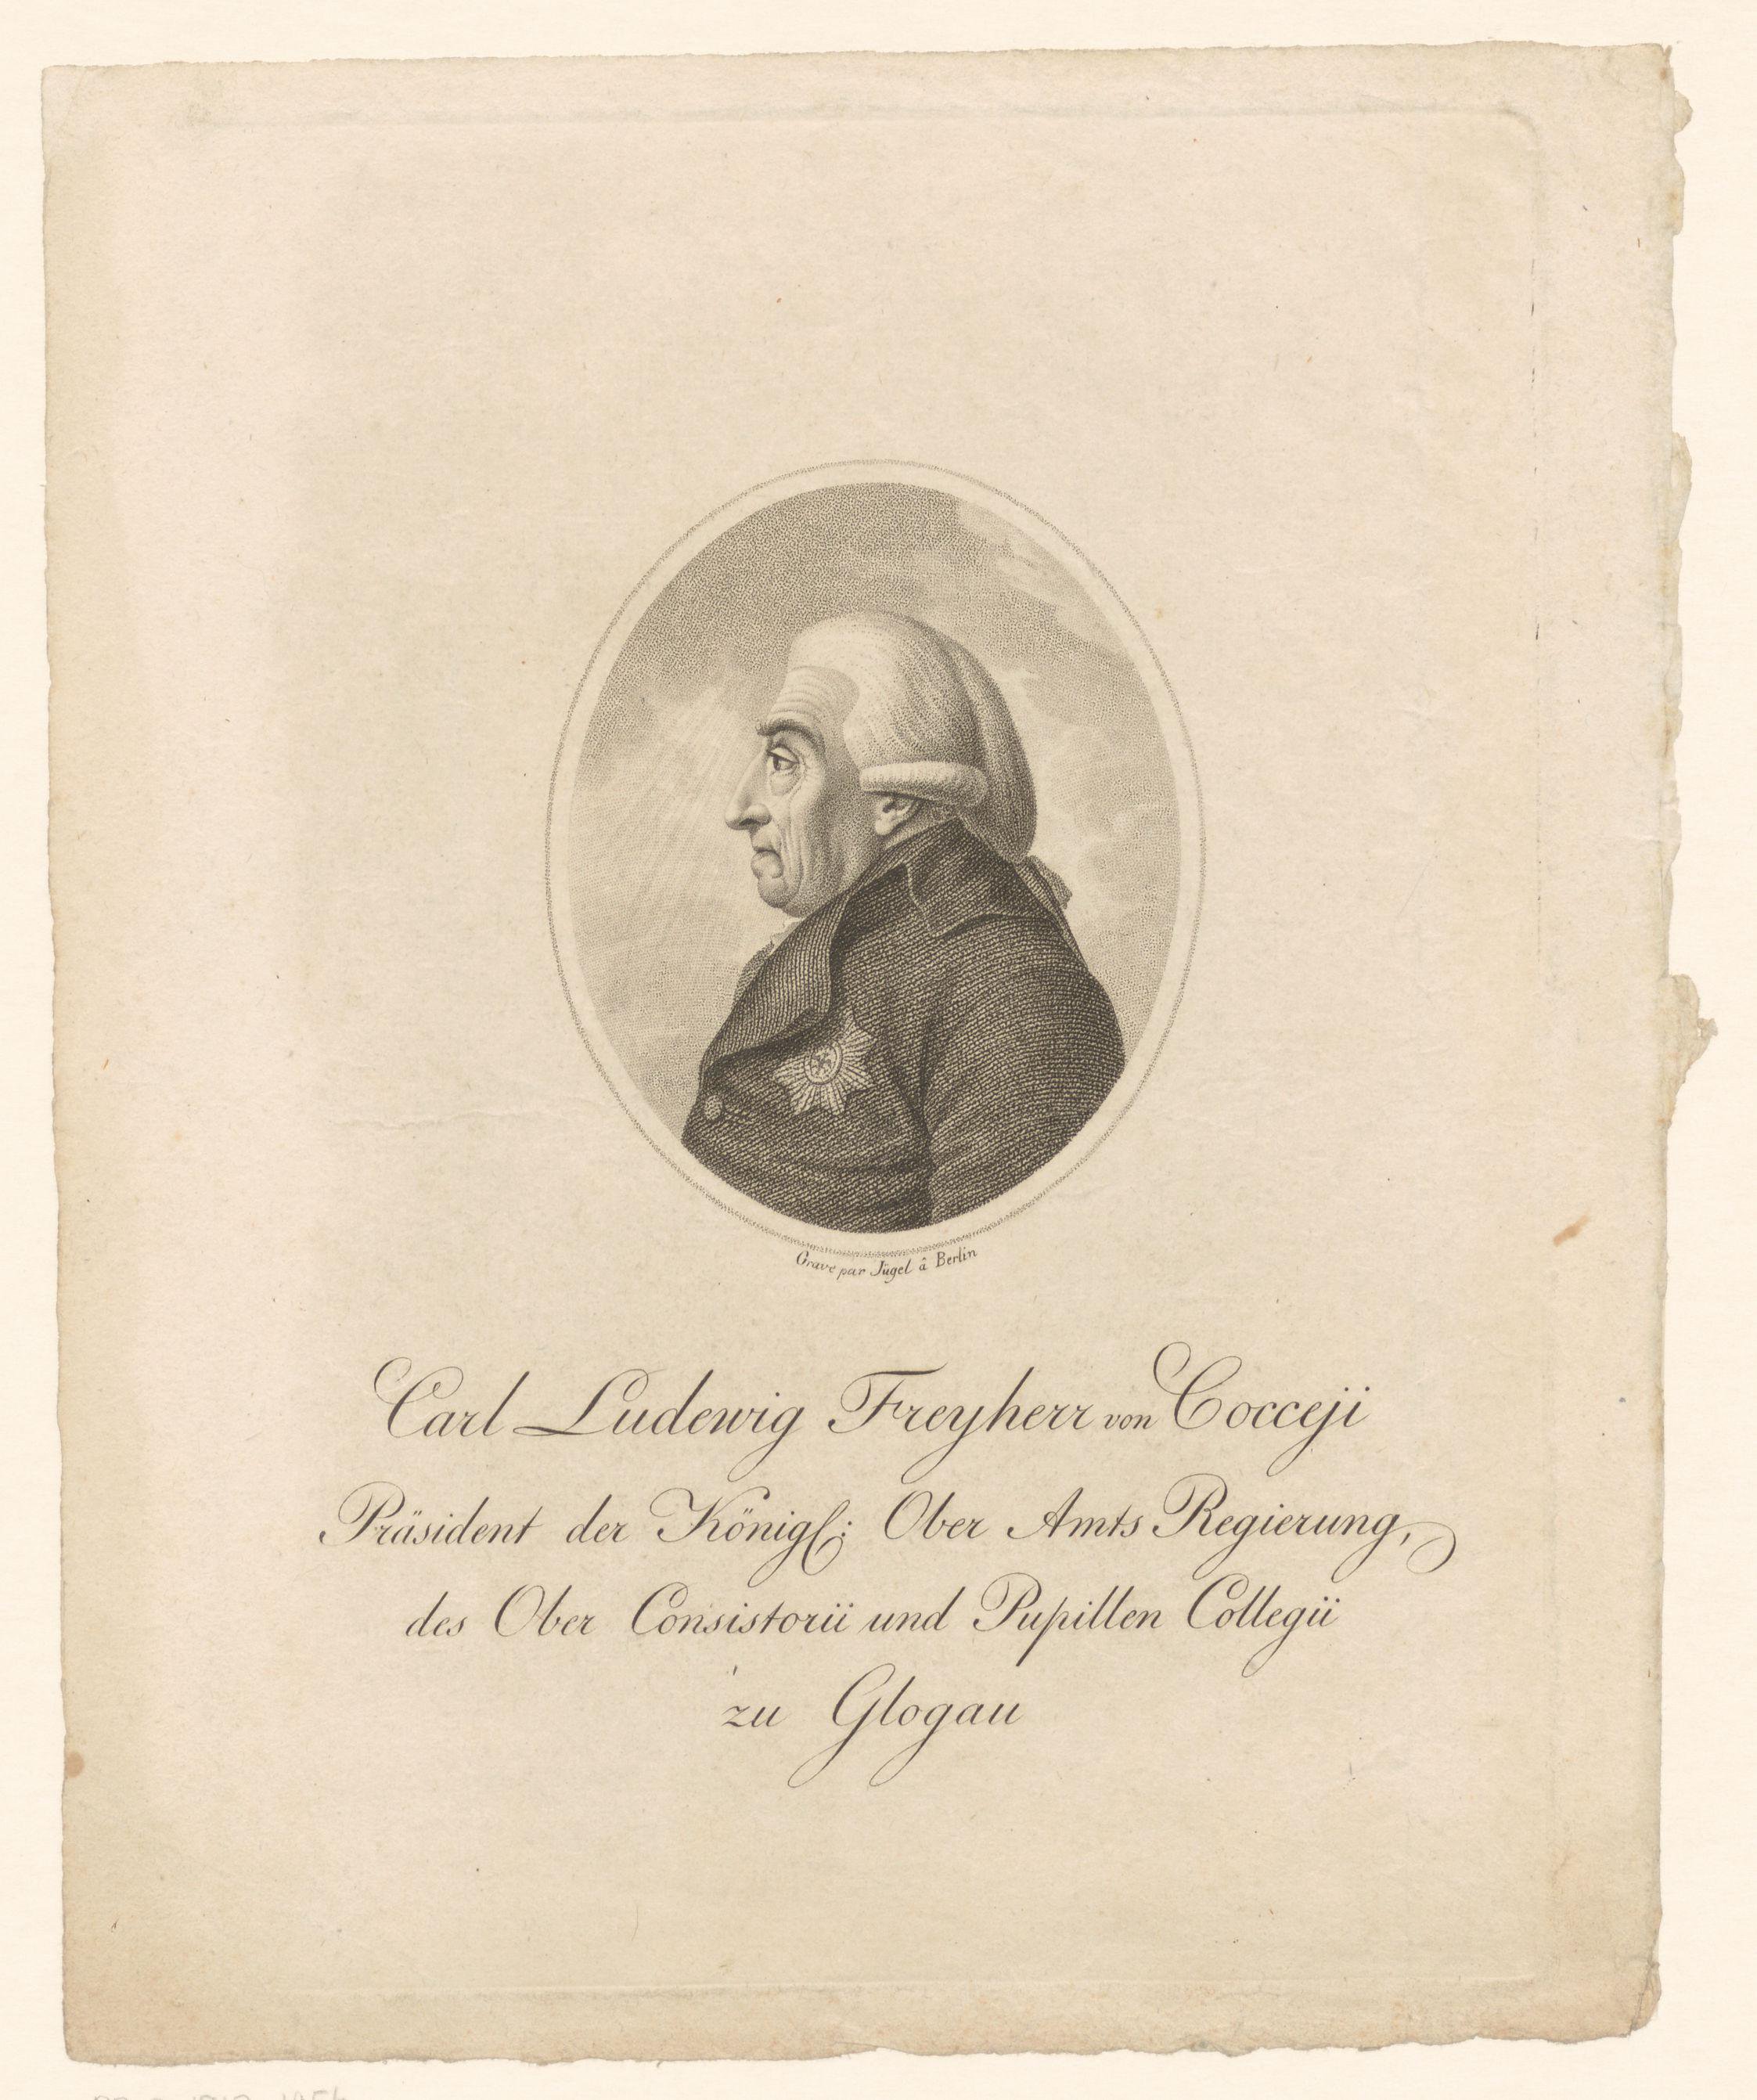 Grave par Jügel â Berlin
Carl Ludewig Freyherr von Cocceji
Präsident der Königl: Ober Amts Regierung,
des Ober Consistorii und Pupillen Collegii
zu Glogau